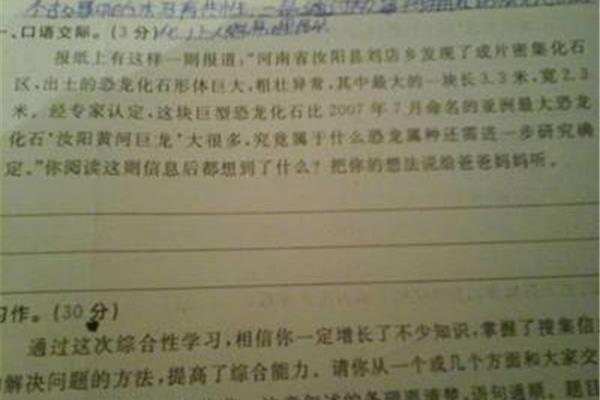 、口语交际。(3分)
报纸上有这样一则报道:"河南省汝阳县刘店乡发现了成片密集化石
区,出土的恐龙化石形体巨大,粗壮异常,其中最大的一块长3.3米,宽2.3
米。经专家认定,这块巨型恐龙化石比2007年7月命名的亚洲最大恐龙
化石'汝阳黄河巨龙'大很多,究竟属于什么恐龙属种还需进一步研究确
定。"你阅读这则信息后都想到了什么?把你的想法说给爸爸妈妈听。
习作。(30分)
通过这次综合性学习,相信你一定增长了不少知识,掌握了搜集信
解决问题的方法,提高了综合能力。请你从一个或几个方面和大家交